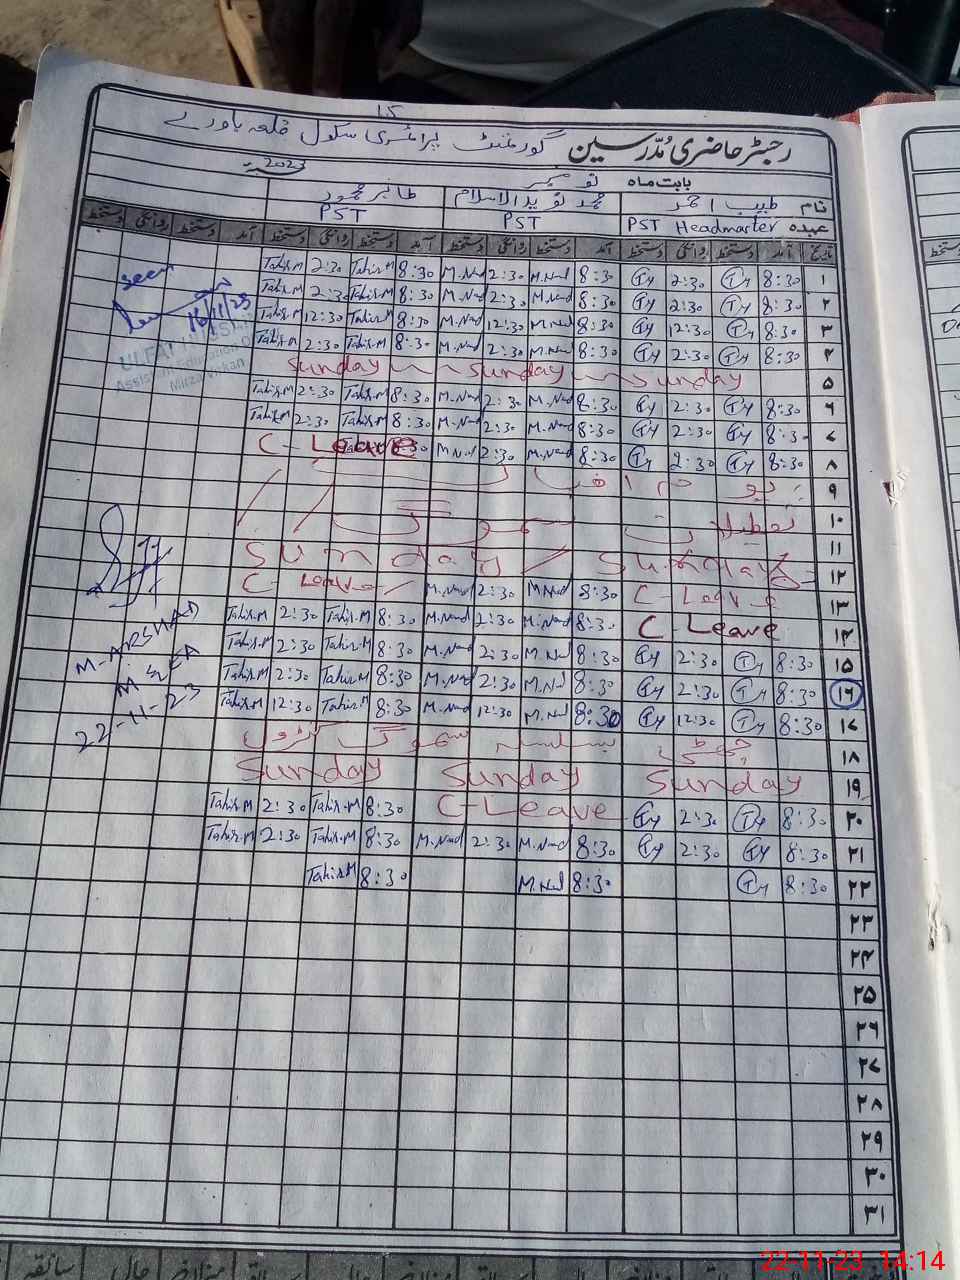 15
رجسٹر حاضری مُدرسین گورنمنٹ پرائمری سکول قلعہ یاورے
بابت ماہ نومبر 2023ء
نام طیب احمد محمد نوید الاسلام طاہر محمود
عہدہ PST Headmaster PST PST
تاریخ آمد دستخط روانگی دستخط آمد دستخط روانگی دستخط آمد دستخط روانگی دستخط آمد دستخط روانگی دستخط
۱ 8:30 Ty 2:30 Ty 8:30 M.Nvd 2:30 M.Nvd 8:30 Tahir.M 2:30 Tahir.M
۲ 8:30 Ty 2:30 Ty 8:30 M.Nvd 2:30 M.Nvd 8:30 Tahir.M 2:30 Tahir.M
۳ 8:30 Ty 12:30 Ty 8:30 M.Nvd 12:30 M.Nvd 8:30 Tahir.M 12:30 Tahir.M
۴ 8:30 Ty 2:30 Ty 8:30 M.Nvd 2:30 M.Nvd 8:30 Tahir.M 2:30 Tahir.M
۵ Sunday Sunday Sunday
۶ 8:30 Ty 2:30 Ty 8:30 M.Nvd 2:30 M.Nvd 8:30 Tahir.M 2:30 Tahir.M
۷ 8:30 Ty 2:30 Ty 8:30 M.Nvd 2:30 M.Nvd 8:30 Tahir.M 2:30 Tahir.M
۸ 8:30 Ty 2:30 Ty 8:30 M.Nvd 2:30 M.Nvd 8:30 C-Leave
۹ یوم اقبال
۱۰ تعطیلات سموگ
۱۱
۱۲ Sunday Sunday
۱۳ C-Leave 8:30 M.Nvd 2:30 M.Nvd C-Leave
۱۴ C-Leave 8:30 M.Nvd 2:30 M.Nvd 8:30 Tahir.M 2:30 Tahir.M
۱۵ 8:30 Ty 2:30 Ty 8:30 M.Nvd 2:30 M.Nvd 8:30 Tahir.M 2:30 Tahir.M
۱۶ 8:30 Ty 2:30 Ty 8:30 M.Nvd 2:30 M.Nvd 8:30 Tahir.M 2:30 Tahir.M
۱۷ 8:30 Ty 12:30 Ty 8:30 M.Nvd 12:30 M.Nvd 8:30 Tahir.M 12:30 Tahir.M
۱۸ چھٹی بسلسلہ سموگ کنٹرول
۱۹ Sunday Sunday Sunday
۲۰ 8:30 Ty 2:30 Ty C-Leave 8:30 Tahir.M 2:30 Tahir.M
۲۱ 8:30 Ty 2:30 Ty 8:30 M.Nvd 2:30 M.Nvd 8:30 Tahir.M 2:30 Tahir.M
۲۲ 8:30 Ty 8:30 M.Nvd 8:30 Tahir.M
۲۳
۲۴
۲۵
۲۶
۲۷
۲۸
۲۹
۳۰
۳۱
seen
16/11/23
Assistant Education O
M.ARSHAD
M.EA
22-11-23
سابقہ حالی
22-11-23 14:14